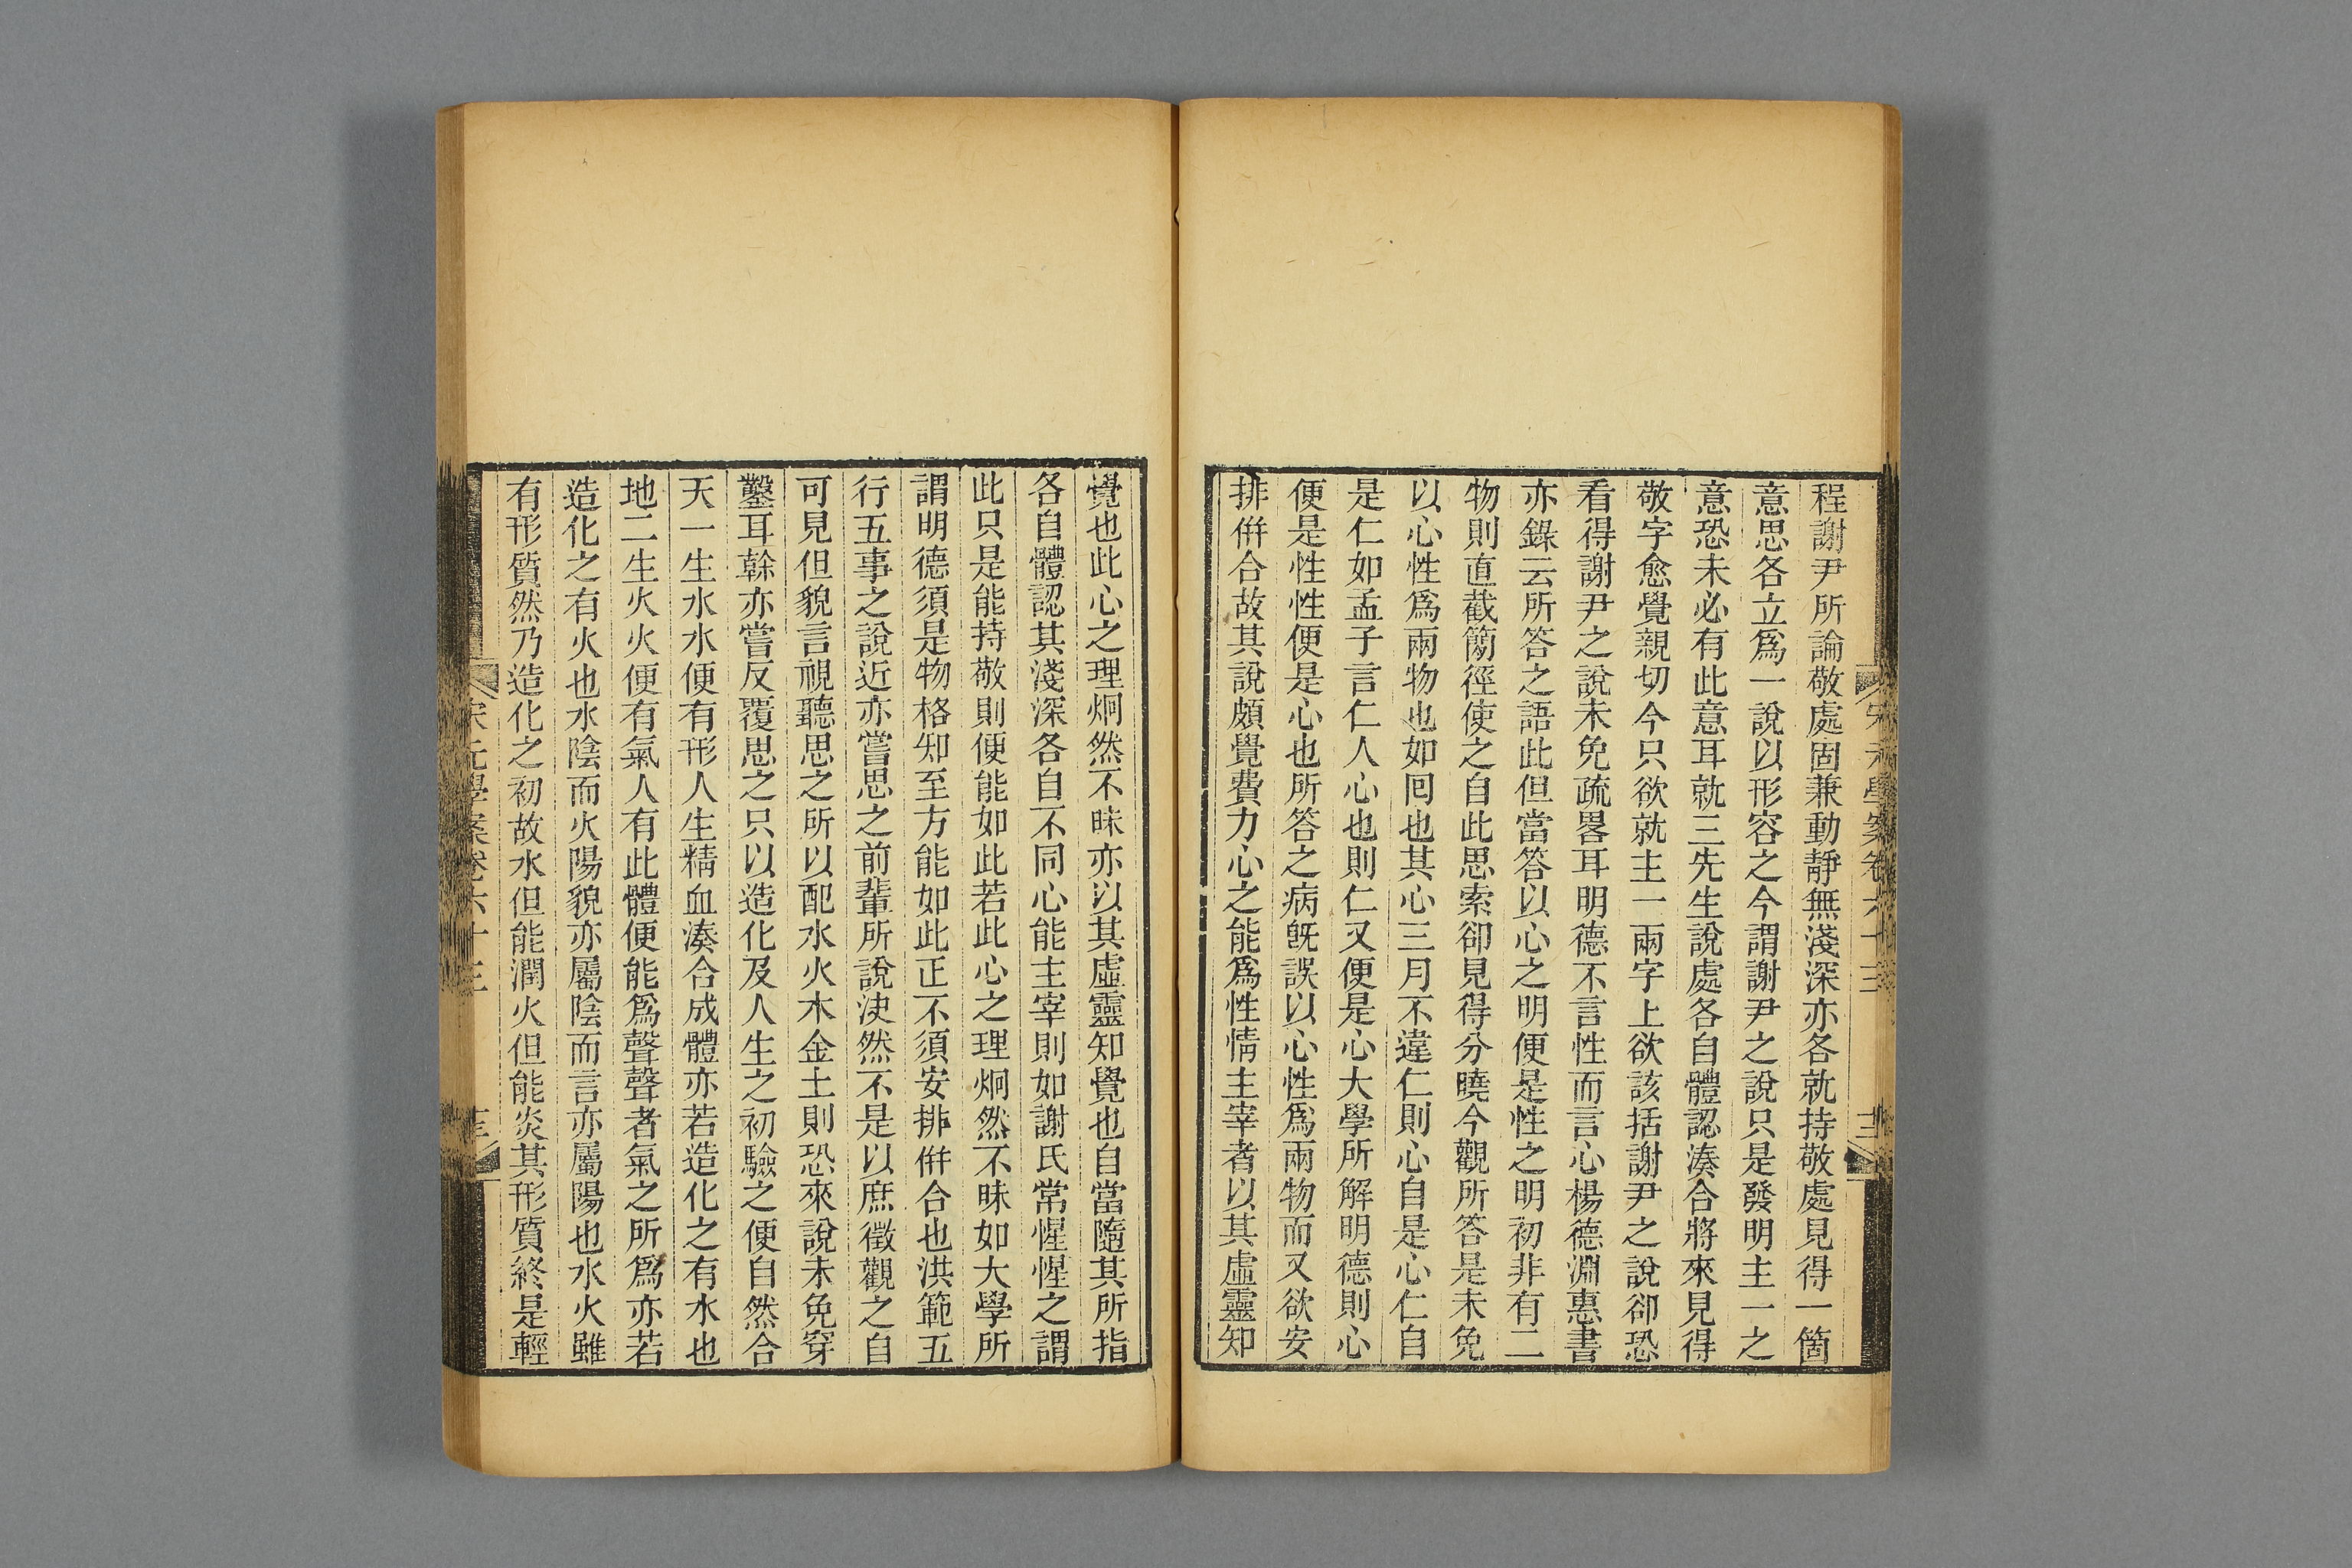 程謝尹所論敬處固兼動靜無淺深亦各就持敬處見得一箇
意思各立爲一說以形容之今謂謝尹之說只是發明主一之
意恐未必有此意耳就三先生說處各自體認湊合將來見得
敬字愈覺親切今只欲就主一兩字上欲該括謝尹之說卻恐
看得謝尹之說未免疏畧耳明德不言性而言心楊德淵惠書
亦錄云所答之語此但當答以心之明便是性之明初非有二
物則直截簡徑使之自此思索卻見得分曉今觀所答是未免
以心性爲兩物也如回也其心三月不違仁則心自是心仁自
是仁如孟子言仁人心也則仁又便是心大學所解明德則心
便是性性便是心也所答之病旣誤以心性爲兩物而又欲安
排倂合故其說頗覺費力心之能爲性情主宰者以其虛靈知
覺也此心之理炯然不昧亦以其虛靈知覺也自當隨其所指
各自體認其淺深各自不同心能主宰則如謝氏常惺惺之謂
此只是能持敬則便能如此若此心之理炯然不昧如大學所
謂明德須是物格知至方能如此正不須安排倂合也洪範五
行五事之說近亦嘗思之前輩所說決然不是以庶徵觀之自
可見但貌言視聽思之所以配水火木金土則恐來說未免穿
鑿耳榦亦嘗反覆思之只以造化及人生之初驗之便自然合
天一生水水便有形人生精血湊合成體亦若造化之有水也
地二生火火便有氣人有此體便能爲聲聲者氣之所爲亦若
造化之有火也水陰而火陽貌亦屬陰而言亦屬陽也水火雖
有形質然乃造化之初故水但能潤火但能炎其形質終是輕
宋元學案卷六十三